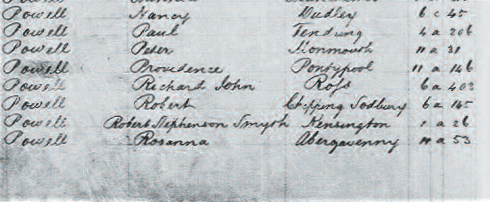 Powell Nancy Dudley 6 c 45
Powell Paul Tendring 4 a 206
Powell Peter Monmouth 11 a 21
Powell Providence Pontypool 11 a 146
Powell Richard John Ross 6 a 403
Powell Robert Chipping Sodbury 6 a 145
Powell Robert Stephenson Smyth Kensington 1 a 26
Powell Rosanna Abergavenny 11 a 53